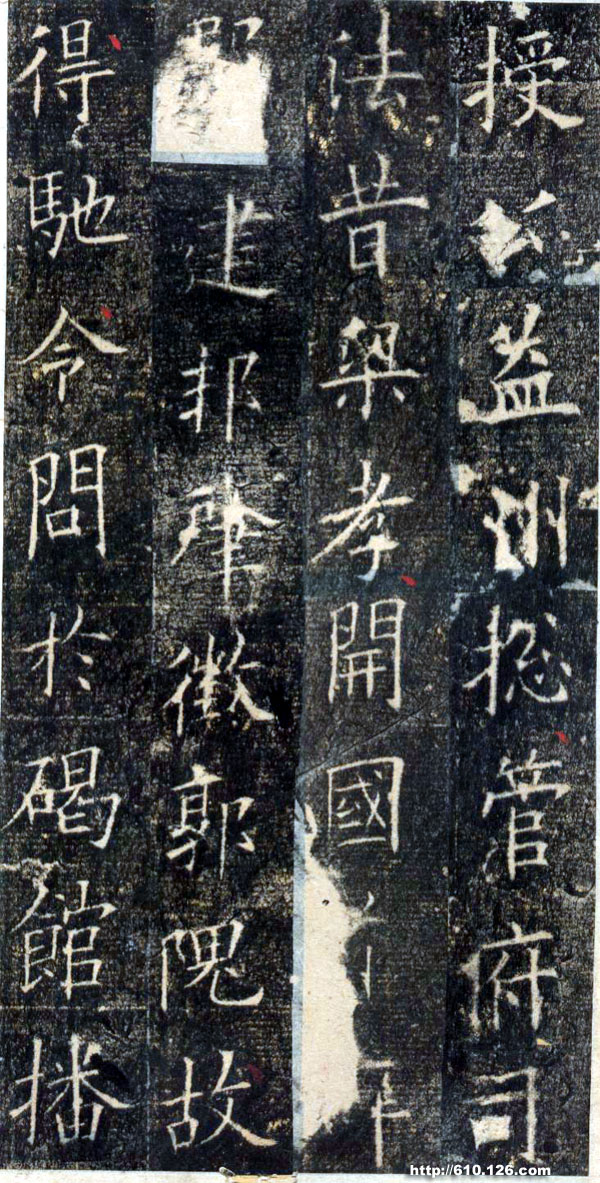 授公益州揔管府司
法昔梁孝開國
建邦肇徵郭隗故
得馳令問於碣館播
http://610.126.com